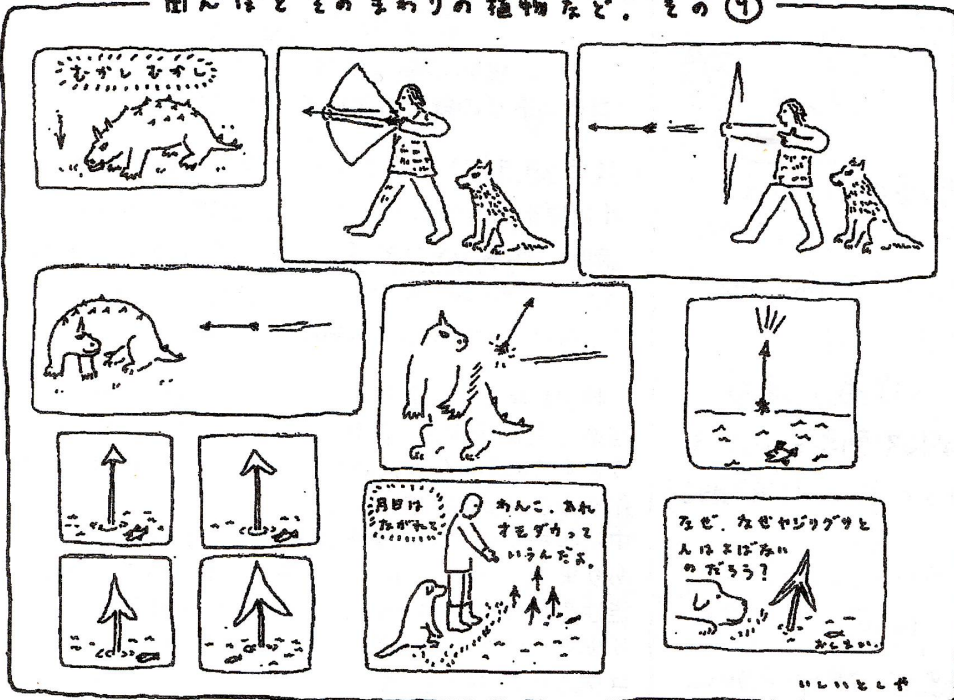 田んぼとそのまわりの植物など. その⑨
むかしむかし
月日は
ながれて
わんこ、あれ
オモダカって
いうんだよ。
なぜ、なぜヤジリグサと
人はよばない
のだろう?
おしまい.
いしいとしや